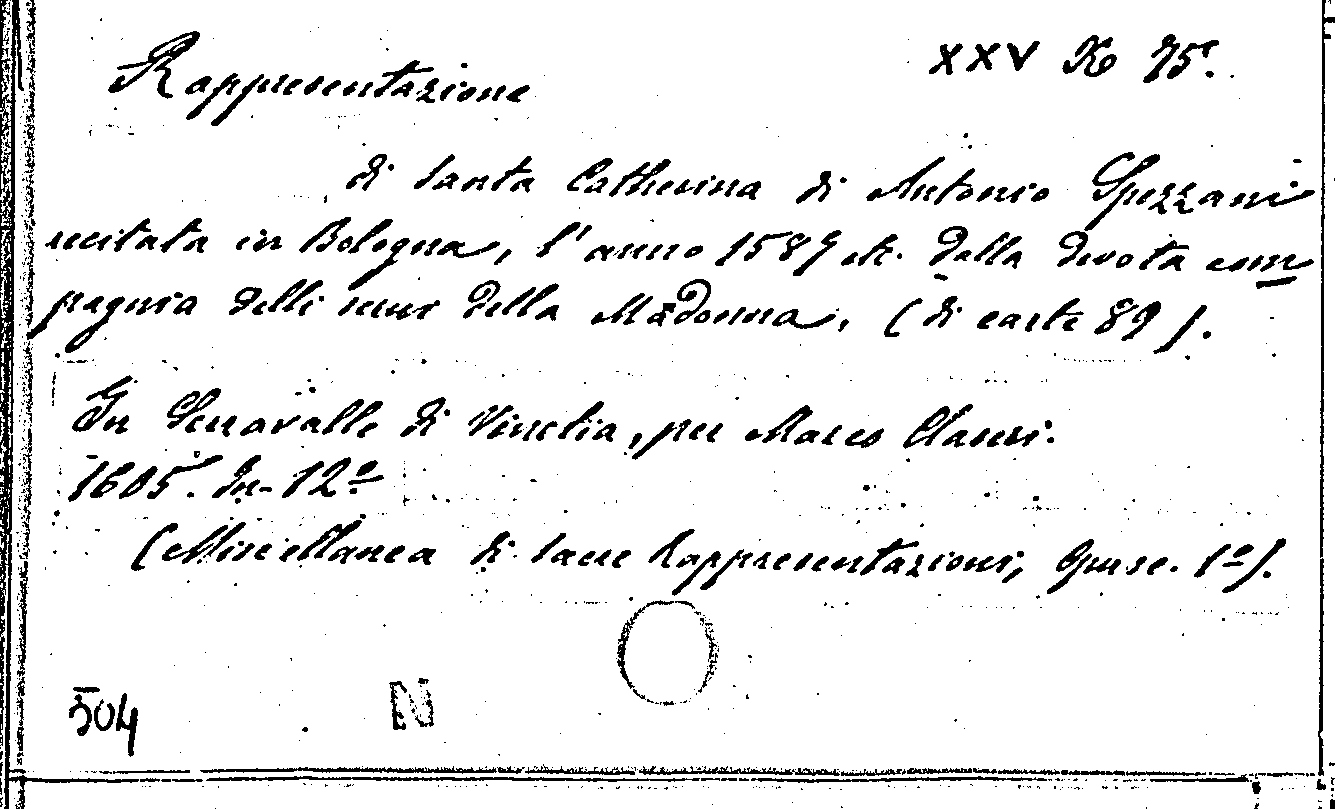 Rappresentazione
XXV 75.
di Santa Catherina di Antonio Spezzani
recitata in Bologna, l'anno 1587 etc. dalla devota com
pagnia delli della Madonna, (di carte 89).
In Serravalle di Vinetia, per Marco Claseri.
1605. In-12º
(Miscellanea di Sacre Rappresentazioni, Opusc. 1º).
504
N